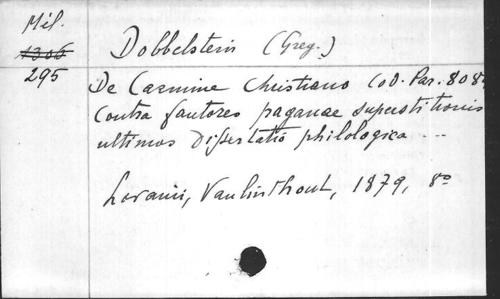 Mél.
1306
295
Dobbelstein (Greg.)
De Carmine Christiano Cod. Par. 8084
Contra fautores paganae superstitionis
ultimos Dissertatio philologica ...
Lovanii, Vanlinthout, 1879, 8º